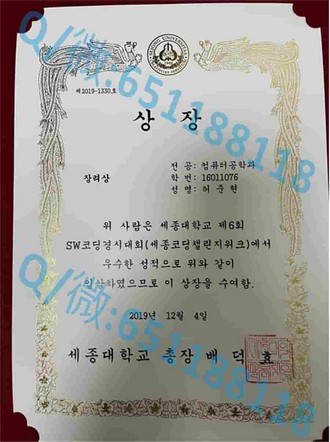 제2019-1330호
상장
장려상
전 공: 컴퓨터공학과
학 번: 16011076
성 명: 허준현
위 사람은 세종대학교 제6회
SW코딩경시대회(세종코딩챌린지위크)에서
우수한 성적으로 위와 같이
입상하였으므로 이 상장을 수여함.
2019년 12월 4일
세종대학교 총장 배덕효
Q/微:651188118
Q/微:651188118